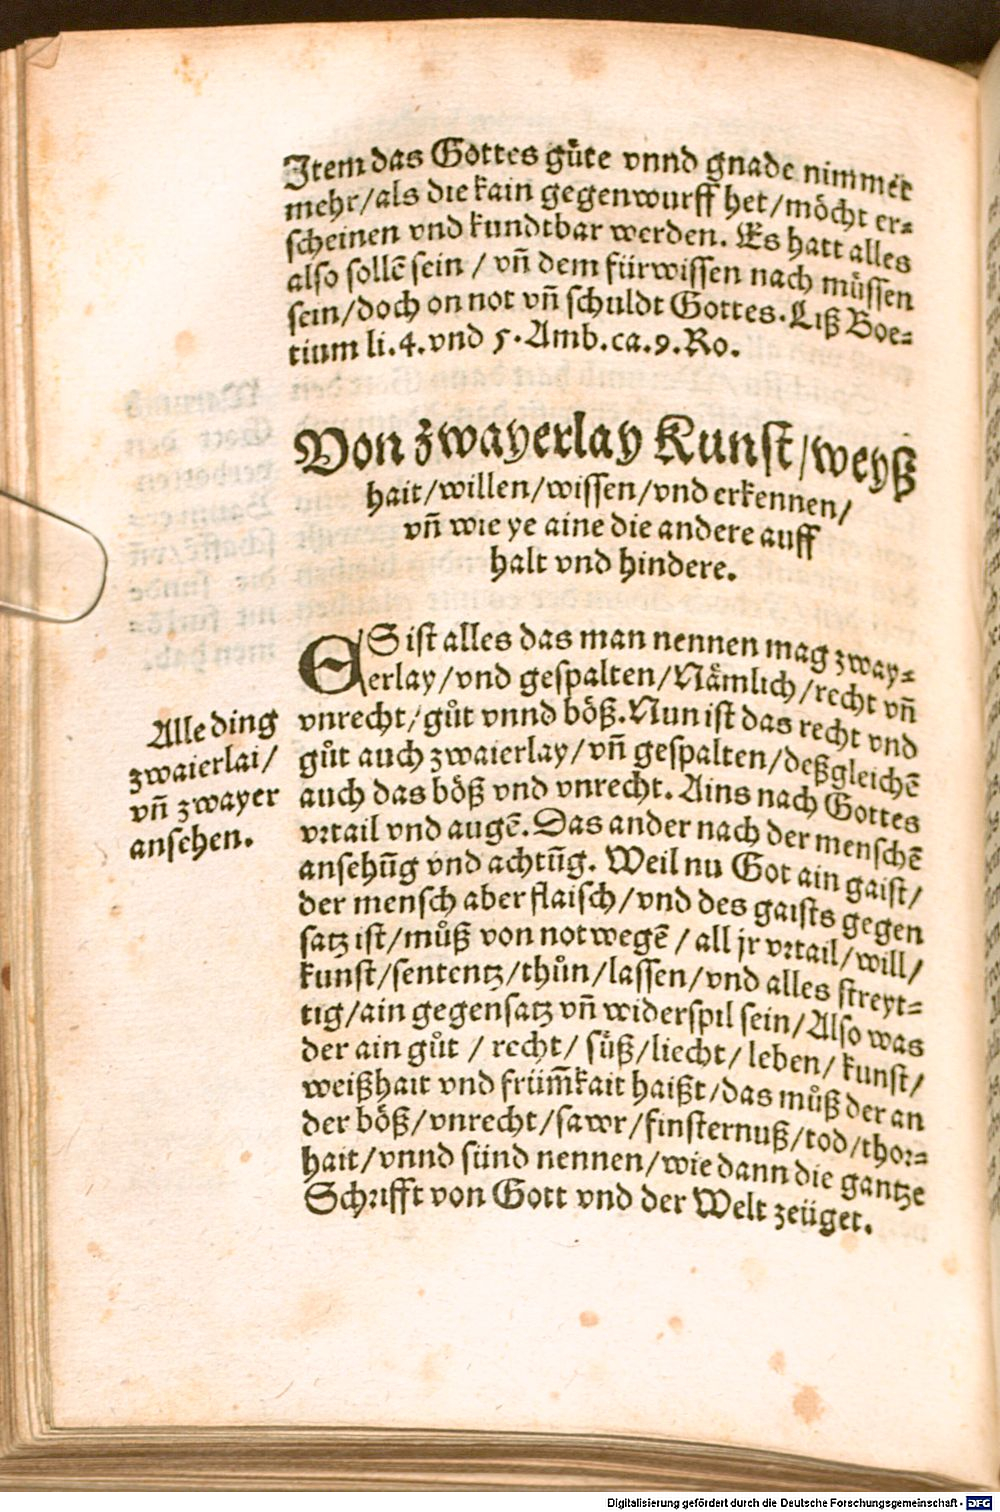 Item das Gottes guͤte vnnd gnade nimmer
mehr/als die kain gegenwurff het/moͤcht er⸗
scheinen vnd kundtbar werden. Es hatt alles
also sollē sein / vn̄ dem fürwissen nach muͤssen
sein/doch on not vn̄ schuldt Gottes. Liß Boe⸗
tium li. 4. vnd 5. Amb. ca. 9. Ro.
Von zwayerlay Kunst/weyß
hait/willen/wissen/vnd erkennen/
vn̄ wie ye aine die andere auff
halt vnd hindere.
ES ist alles das man nennen mag zway⸗
erlay/vnd gespalten/Naͤmlich/recht vn̄
vnrecht/guͦt vnnd boͤß. Nun ist das recht vnd
guͦt auch zwaierlay/vn̄ gespalten/deßgleichē
auch das boͤß vnd vnrecht. Ains nach Gottes
vrtail vnd augē. Das ander nach der menschē
ansehūg vnd achtūg. Weil nu Got ain gaist/
der mensch aber flaisch/vnd des gaists gegen
satz ist/muͦß von notwegē / all jr vrtail/will/
kunst/sententz/thuͦn/lassen/vnd alles streyt⸗
tig/ain gegensatz vn̄ widerspil sein/Also was
der ain guͦt / recht/ suͤß/liecht/ leben/ kunst/
weißhait vnd früm̄kait haißt/das muͦß der an
der boͤß/vnrecht/sawr/finsternuß/tod/thor⸗
hait/vnnd sünd nennen/wie dann die gantze
Schrifft von Gott vnd der Welt zeüget.
Alle ding
zwaierlai/
vn̄ zwayer
ansehen.
Digitalisierung gefördert durch die Deutsche Forschungsgemeinschaft - DFG